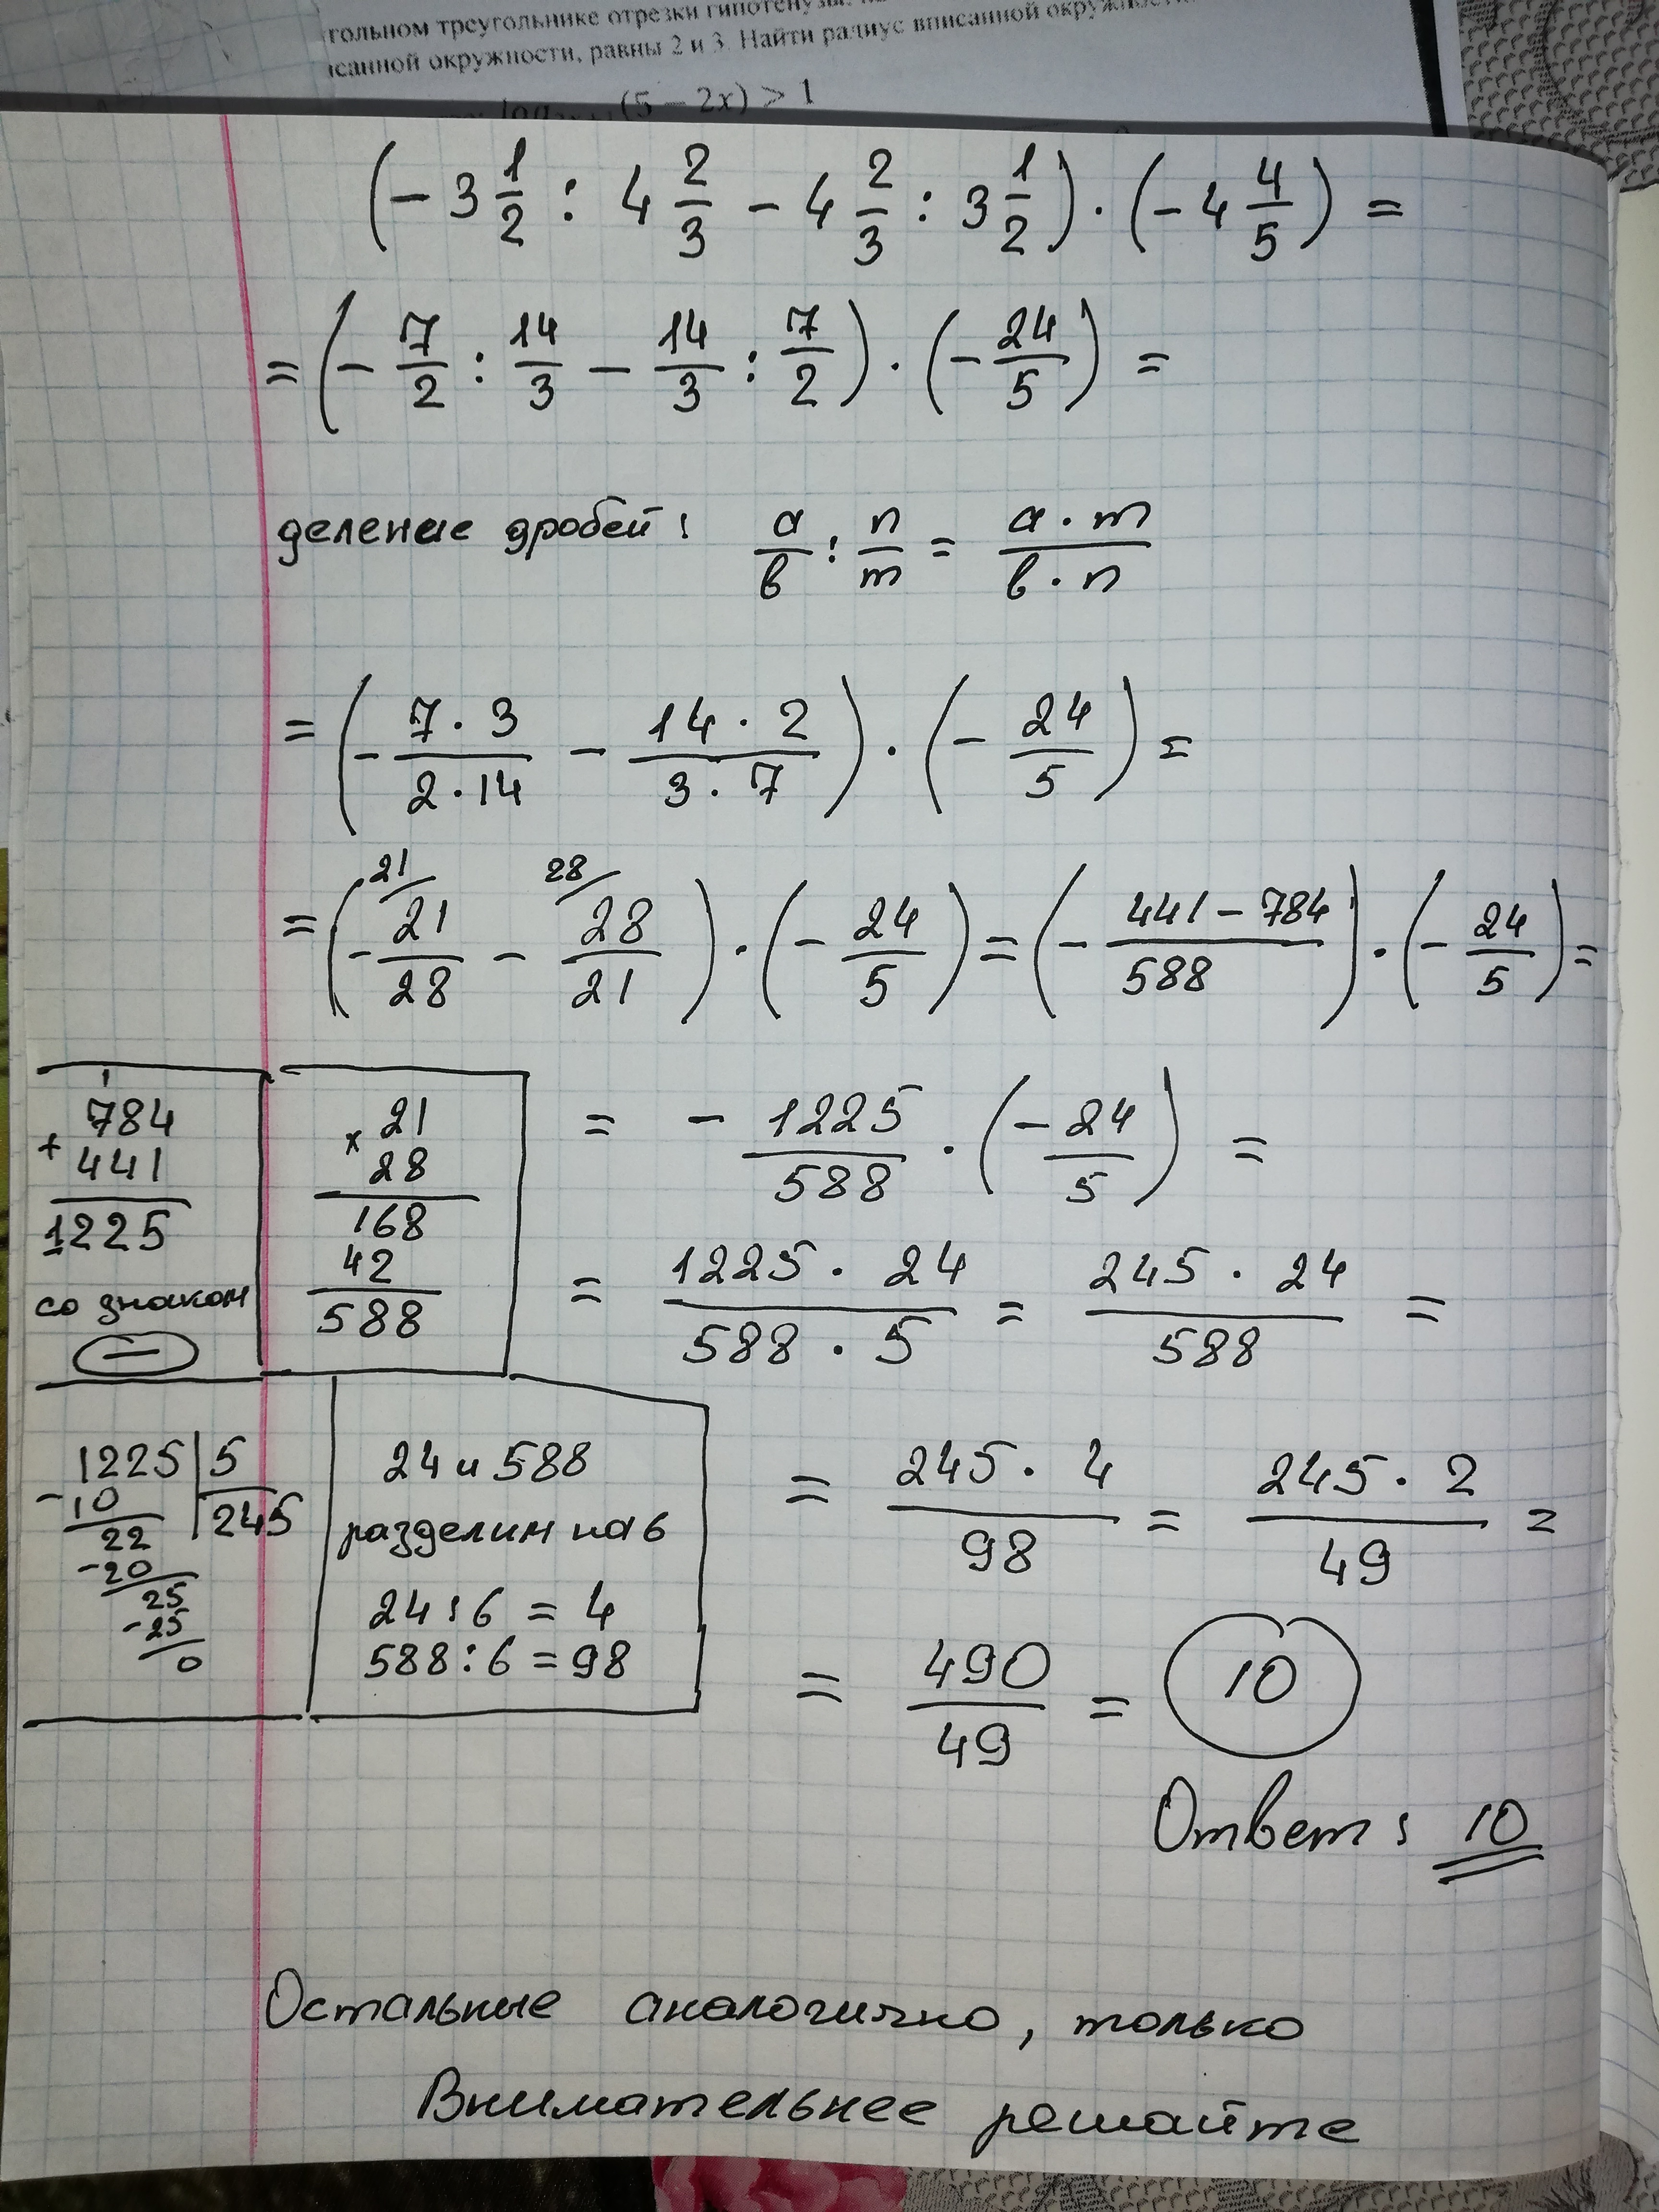 гольном треугольнике отрезки гипотенузы,
исанной окружности, равны 2 и 3. Найти радиус вписанной
(5 − 2x) > 1
(− 3 1/2 : 4 2/3 − 4 2/3 : 3 1/2) · (− 4 4/5) =
= (− 7/2 : 14/3 − 14/3 : 7/2) · (− 24/5) =
деление дробей: а/в : n/m = а · m / в · n
= (− 7 · 3 / 2 · 14 − 14 · 2 / 3 · 7) · (− 24/5) =
= (− 21/ 21/28 − 28/ 28/21) · (− 24/5) = (− 441 − 784 / 588) · (− 24/5) =
784
+ 441
1225
со знаком
−
× 21
28
168
42
588
= − 1225/588 · (− 24/5) =
= 1225 · 24 / 588 · 5 = 245 · 24 / 588 =
1225 | 5
− 10 | 245
22
− 20
25
− 25
0
24 и 588
разделим на 6
24 : 6 = 4
588 : 6 = 98
= 245 · 4 / 98 = 245 · 2 / 49 =
= 490/49 = 10
Ответ: 10
Остальные аналогично, только
Внимательнее решайте